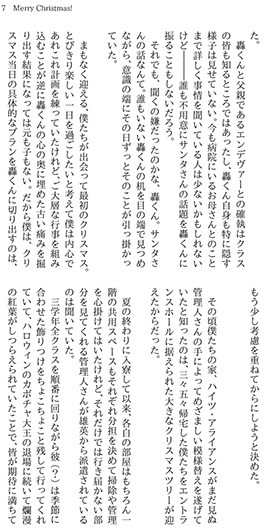 7　Merry Christmas!
た。
　轟くんと父親であるエンデヴァーとの確執はクラス
の皆も知るところではあったし、轟くん自身も特に隠す
様子は見せていない。今も病院にいるお母さんとのこと
まで詳しく事情を聞いている人は少ないかもしれない
けど――誰も不用意にサンタさんの話題を轟くんに
振ることもしないだろう。
　それでも、聞くの嫌だったのかな、轟くん。サンタさ
んの話なんて。誰もいない轟くんの机を目の端で見つめ
ながら、意識の端にその日ずっとそのことが引っ掛かっ
ていた。
　まもなく迎える、僕たちが出会って最初のクリスマス。
とびきり楽しい一日を過ごしたいと考えて僕は内心で
あれこれ計画を練っていたけれど、ご大層な行事を組み
込むことが逆に轟くんの心の奥に埋めた古い痛みを掘
り出す結果になっては元も子もない。だから僕は、クリ
スマス当日の具体的なプランを轟くんに切り出すのは、
もう少し考慮を重ねてからにしようと決めた。
　その頃僕たちの家、ハイツ・アライアンスがまだ見ぬ
管理人さんの手によってめざましい模様替えを遂げて
いたと知ったのは、三々五々帰宅した僕たちをエントラ
ンスホールに据えられた大きなクリスマスツリーが迎
えたからだった。
　夏の終わりに入寮して以来、各自の部屋はもちろん一
階の共用スペースもそれぞれ分担を決めて掃除や管理
を心掛けてはいたけれど、それだけでは行き届かない部
分を見てくれる管理人さんが雄英から派遣されている
のは聞いていた。
　三学年全クラスを順番に回りながら彼（？）は季節に
合わせた飾りつけをちょこちょこと残して行ってくれ
ていて、ハロウィンのカボチャ大王の退場に続いて爛漫
の紅葉がしつらえられていたことで、皆が期待に満ちて